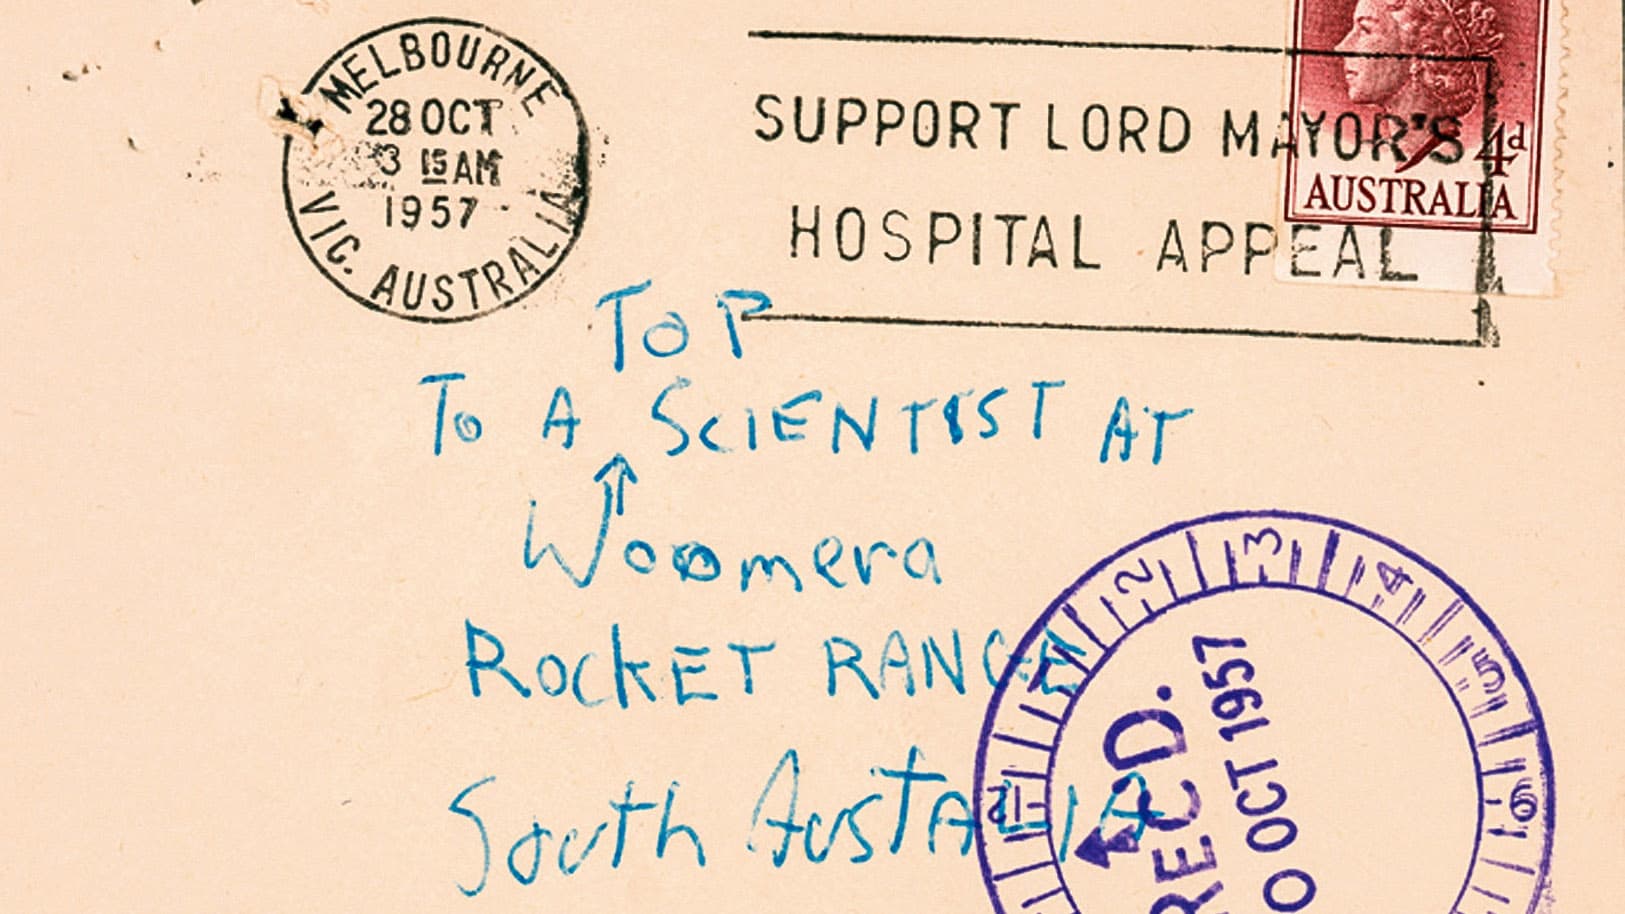 MELBOURNE
28 OCT
3 15 AM
1957
VIC. AUSTRALIA
SUPPORT LORD MAYOR'S
HOSPITAL APPEAL
4d
AUSTRALIA
TOP
To A SCIENTIST AT
Woomera
ROCKET RANGE
South AusTALIA
12 1 2 3 4 5 6
REC'D.
OCT 1957